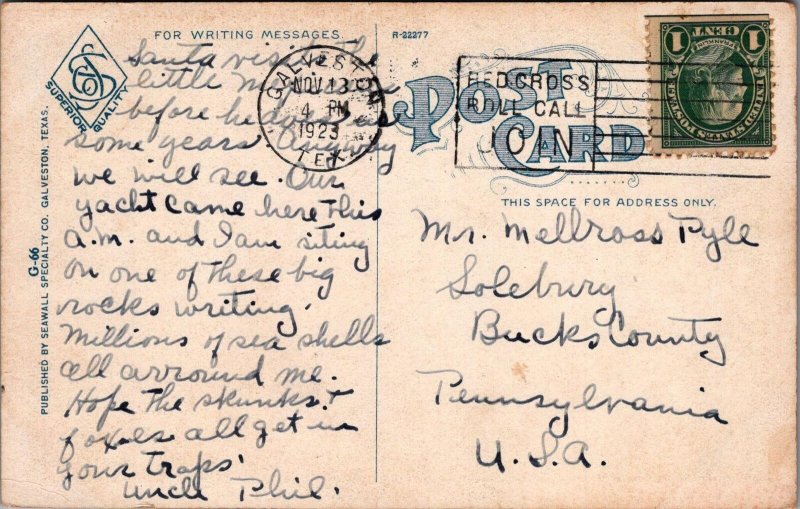 FOR WRITING MESSAGES.
R-22277
SUPERIOR QUALITY
POST CARD
GALVESTON
NOV 13
4 PM
1923
TEX.
RED CROSS
ROLL CALL
JOIN
1 CENT 1
FRANKLIN
UNITED STATES POSTAGE
G-66
PUBLISHED BY SEAWALL SPECIALTY CO. GALVESTON, TEXAS.
THIS SPACE FOR ADDRESS ONLY.
Santa visit the
little
before he
some years Anyway
we will see. Our
yacht came here this
a.m. and I am siting
on one of these big
rocks writing.
Millions of sea shells
all arround me.
Hope the skunks +
foxes all get in
your traps.
Uncle Phil.
Mr. Mellross Pyle
Solebury
Bucks County
Pennsylvania
U.S.A.